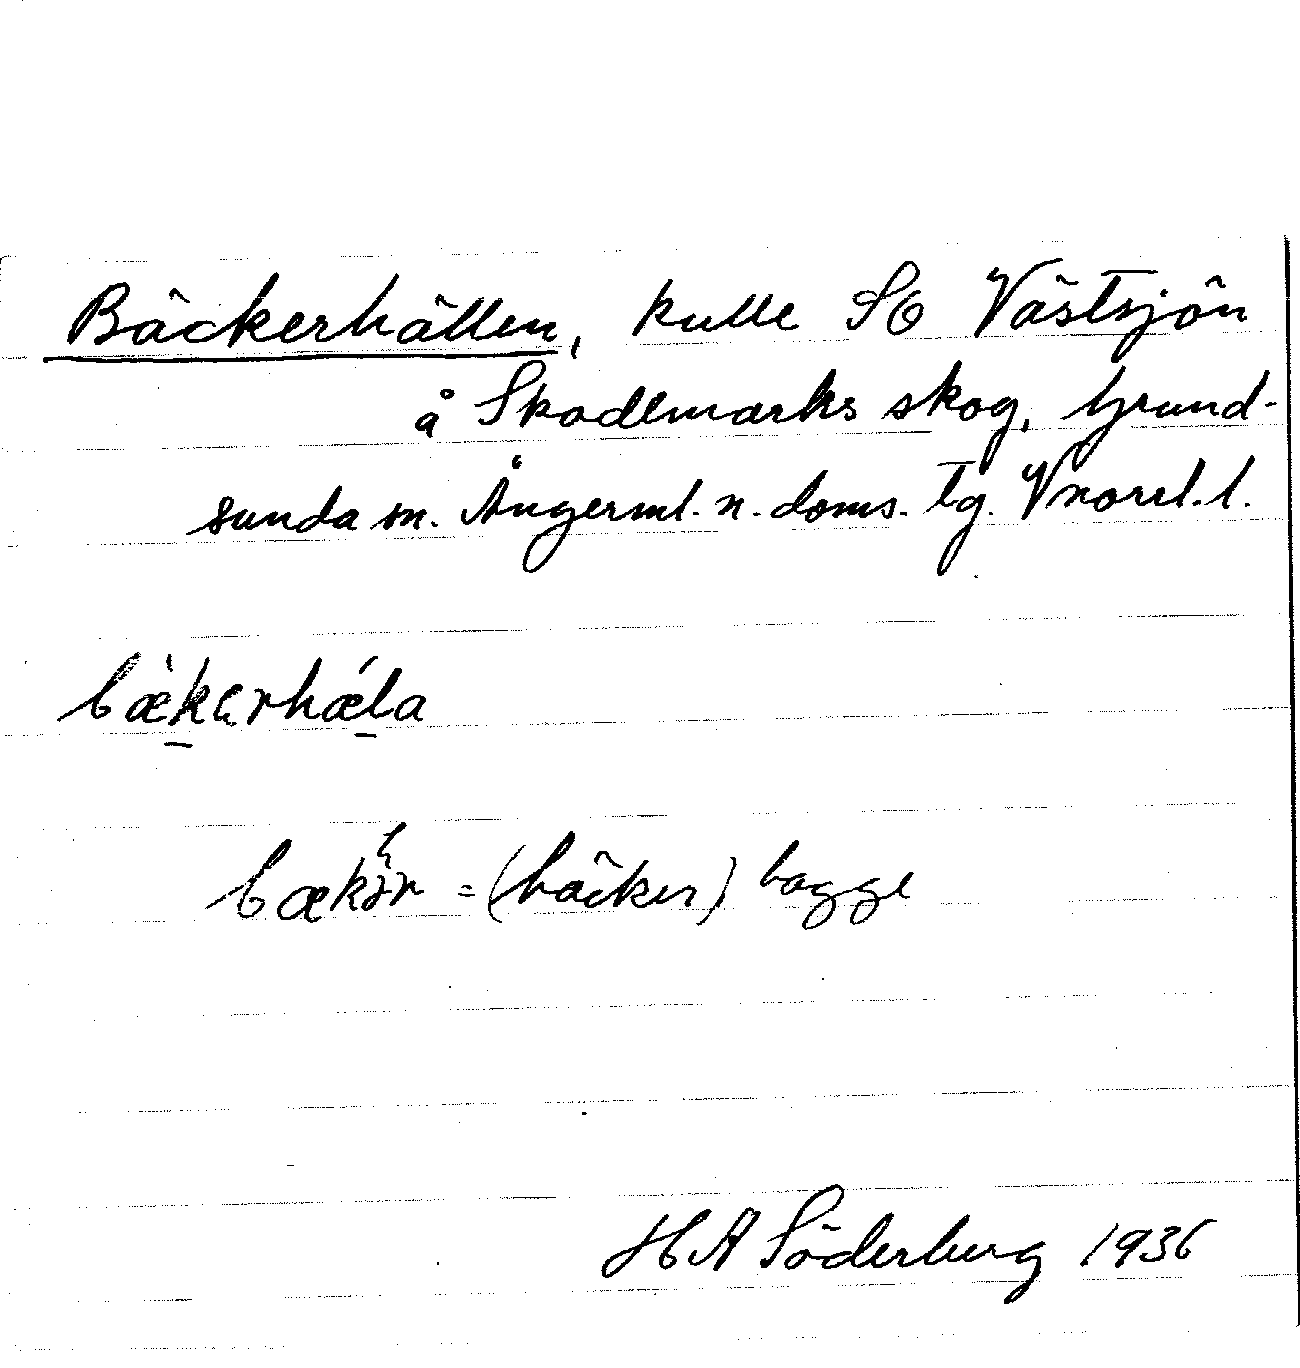 Bäckerhällen, kulle SO Västsjön
å Skadlmarks skog, Grund-
sunda sn. Ångerml. n. doms. tg. Vnorrl. l.
bæ̀kerhǽla
bækər = (bäcker) bagge
H A Söderberg 1936